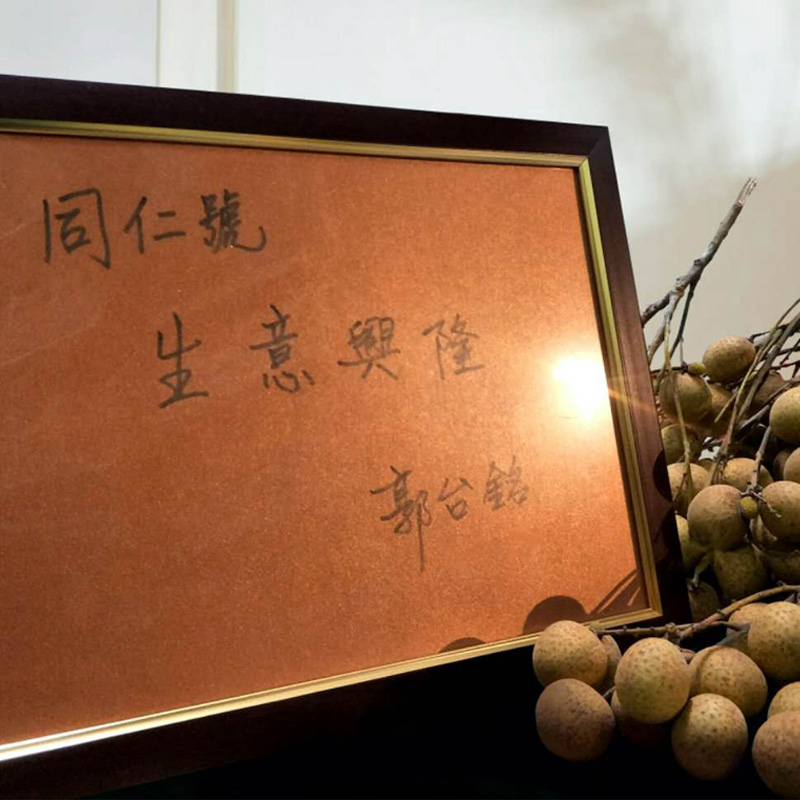 同仁號
生意興隆
郭台銘